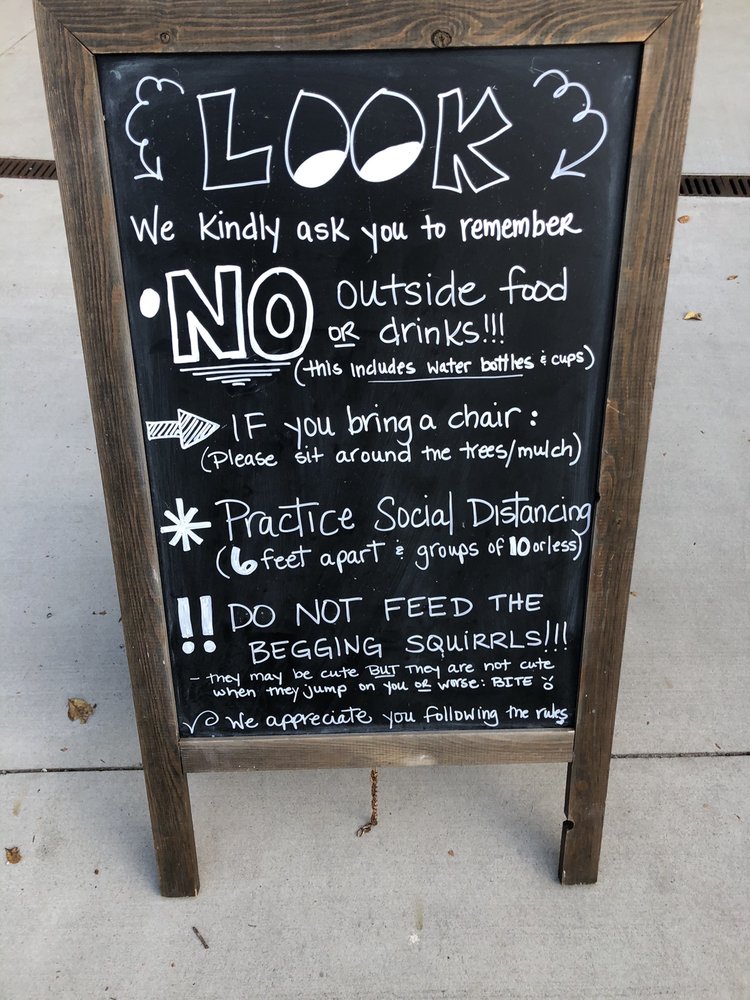 LOOK
We Kindly ask you to remember
• NO outside food
OR drinks!!!
(this includes water bottles & cups)
IF you bring a chair:
(Please sit around the trees/mulch)
* Practice Social Distancing
(6 feet apart & groups of 10 or less)
!! DO NOT FEED THE
BEGGING SQUIRRLS!!!
- they may be cute BUT they are not cute
when they jump on you OR worse: BITE
We appreciate you following the rules